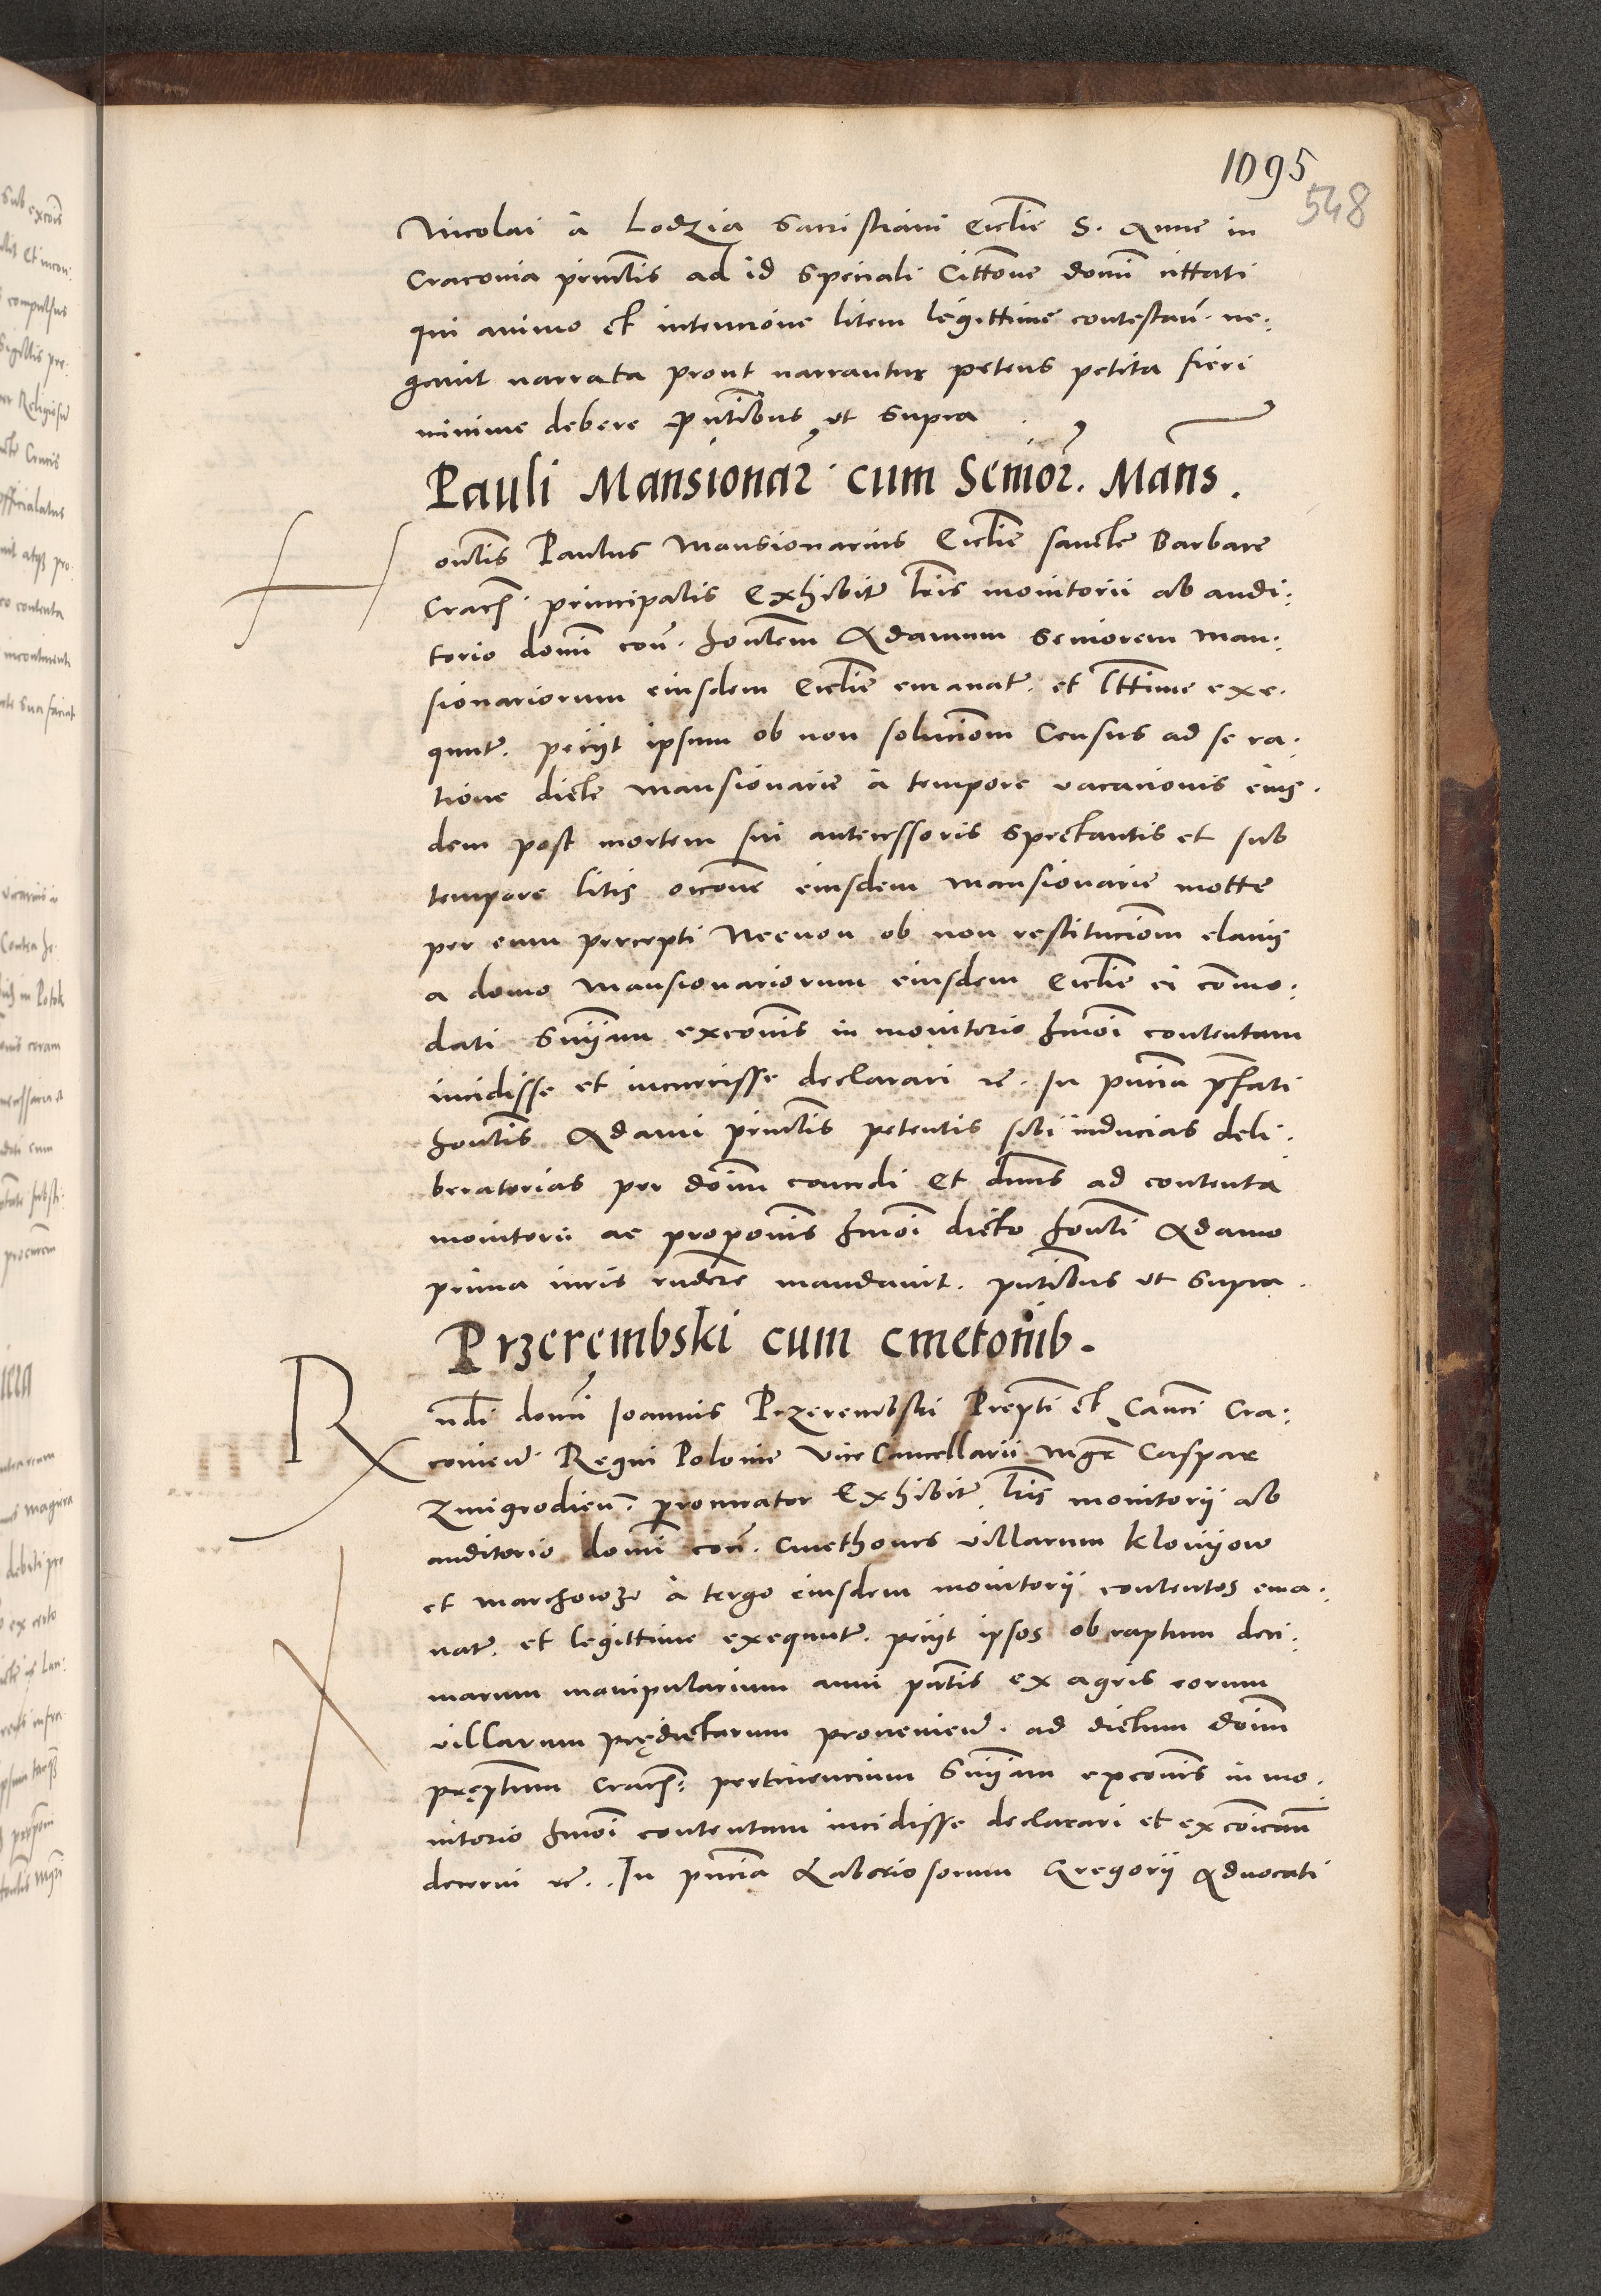 1095
548
Nicolai à Lodzia Sacristiani Ecclie S. Anne in
Craconia princtlis ad id speciali Cittone domi cittati
qui animo et intencione litem legittime contestan̄. ne:
gauit narrata prout narrantur petens petita fieri
minime debere pn̄tibus ut supra
Pauli Mansionar: cum Senior. Mans.
Honctlis Paulus Mansionarius Ecclie sancte Barbare
Cracn̄. principalis Exhibit. lrīs monitorii ab audi:
torio domi con̄. honctem Adamum Seniorem Man:
sionariorum eiusdem Ecclie emanat. et lttime exe.
quut. peciit ipsum ob non soluciom Census ad se ra.
tione dicte Mansionarie à tempore vacacionis eius.
dem post mortem sui antecessoris spectantis et sub
tempore litis occone eiusdem Mansionarie motte
per eum percepti Necnon ob non restituciom clauis
a domo Mansionariorum eiusdem Ecclie ei commo:
dati Snīam excomis in monitorio hmōi contentam
incidisse et incurrisse declarari rc. In pn̄cia prfati
honctlis Adami princtlis petentis sibi inducias deli.
beratorias per domi concedi Et dn̄us ad contenta
monitorii ac proponis hmōi dicto honcti Adamo
prima iuris rndere mandauit. pn̄tibus ut supra.
Przerembski cum cmetonib.
Rndi domi Joannis Przerembski Prepti et Canci Cra:
conien̄. Regni Polonie Vice Cancellarii Mgr Caspar
Zmigrodien̄. procurator Exhibit. lrīs monitorij ab
auditorio domi con̄. Cmethones villarum Klonijow
et Marchowze à tergo eiusdem monitorij contentos ema.
nat. et legittime exequut. peciit ipsos ob raptum deci:
marum manipularium anni pn̄tis ex agris eorum
villarum prędictarum provenien̄. ad dictum domi
pręptum Cracn̄: pertinencium Snīam excomis in mo.
nitorio hmōi contentam incidisse declarari et excōican̄
decerni rc. In pn̄cia Laboriosorum Gregorij Advocati